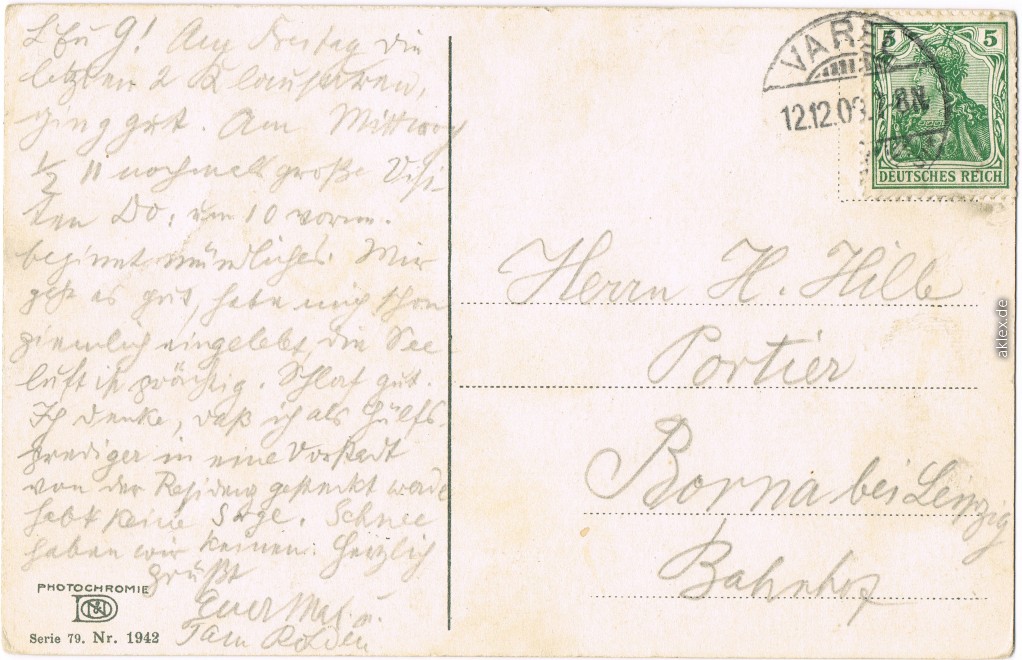 Am Freitag die
letzten 2 Klausuren,
ging gut. Am Mittwoch
½ 11 nochmals große Visi-
ten Do: um 10 vorm.
beginnt mündliches. Mir
geht es gut, habe mich schon
ziemlich eingelebt, die See
luft ist prächtig. Schlaf gut.
Ich denke, daß ich als Hülfs-
prediger in eine Vorstadt
von der Residenz gesteckt werde
habt keine Sorge. Schnee
haben wir keinen. Herzlich
grüßt
Euer
PHOTOCHROMIE
Serie 79. Nr. 1942
VAREL
12.12.09. 7-8N
5 5
DEUTSCHES REICH
Herrn H. Hille
Portier
Borna bei Leipzig
Bahnhof
aklex.de